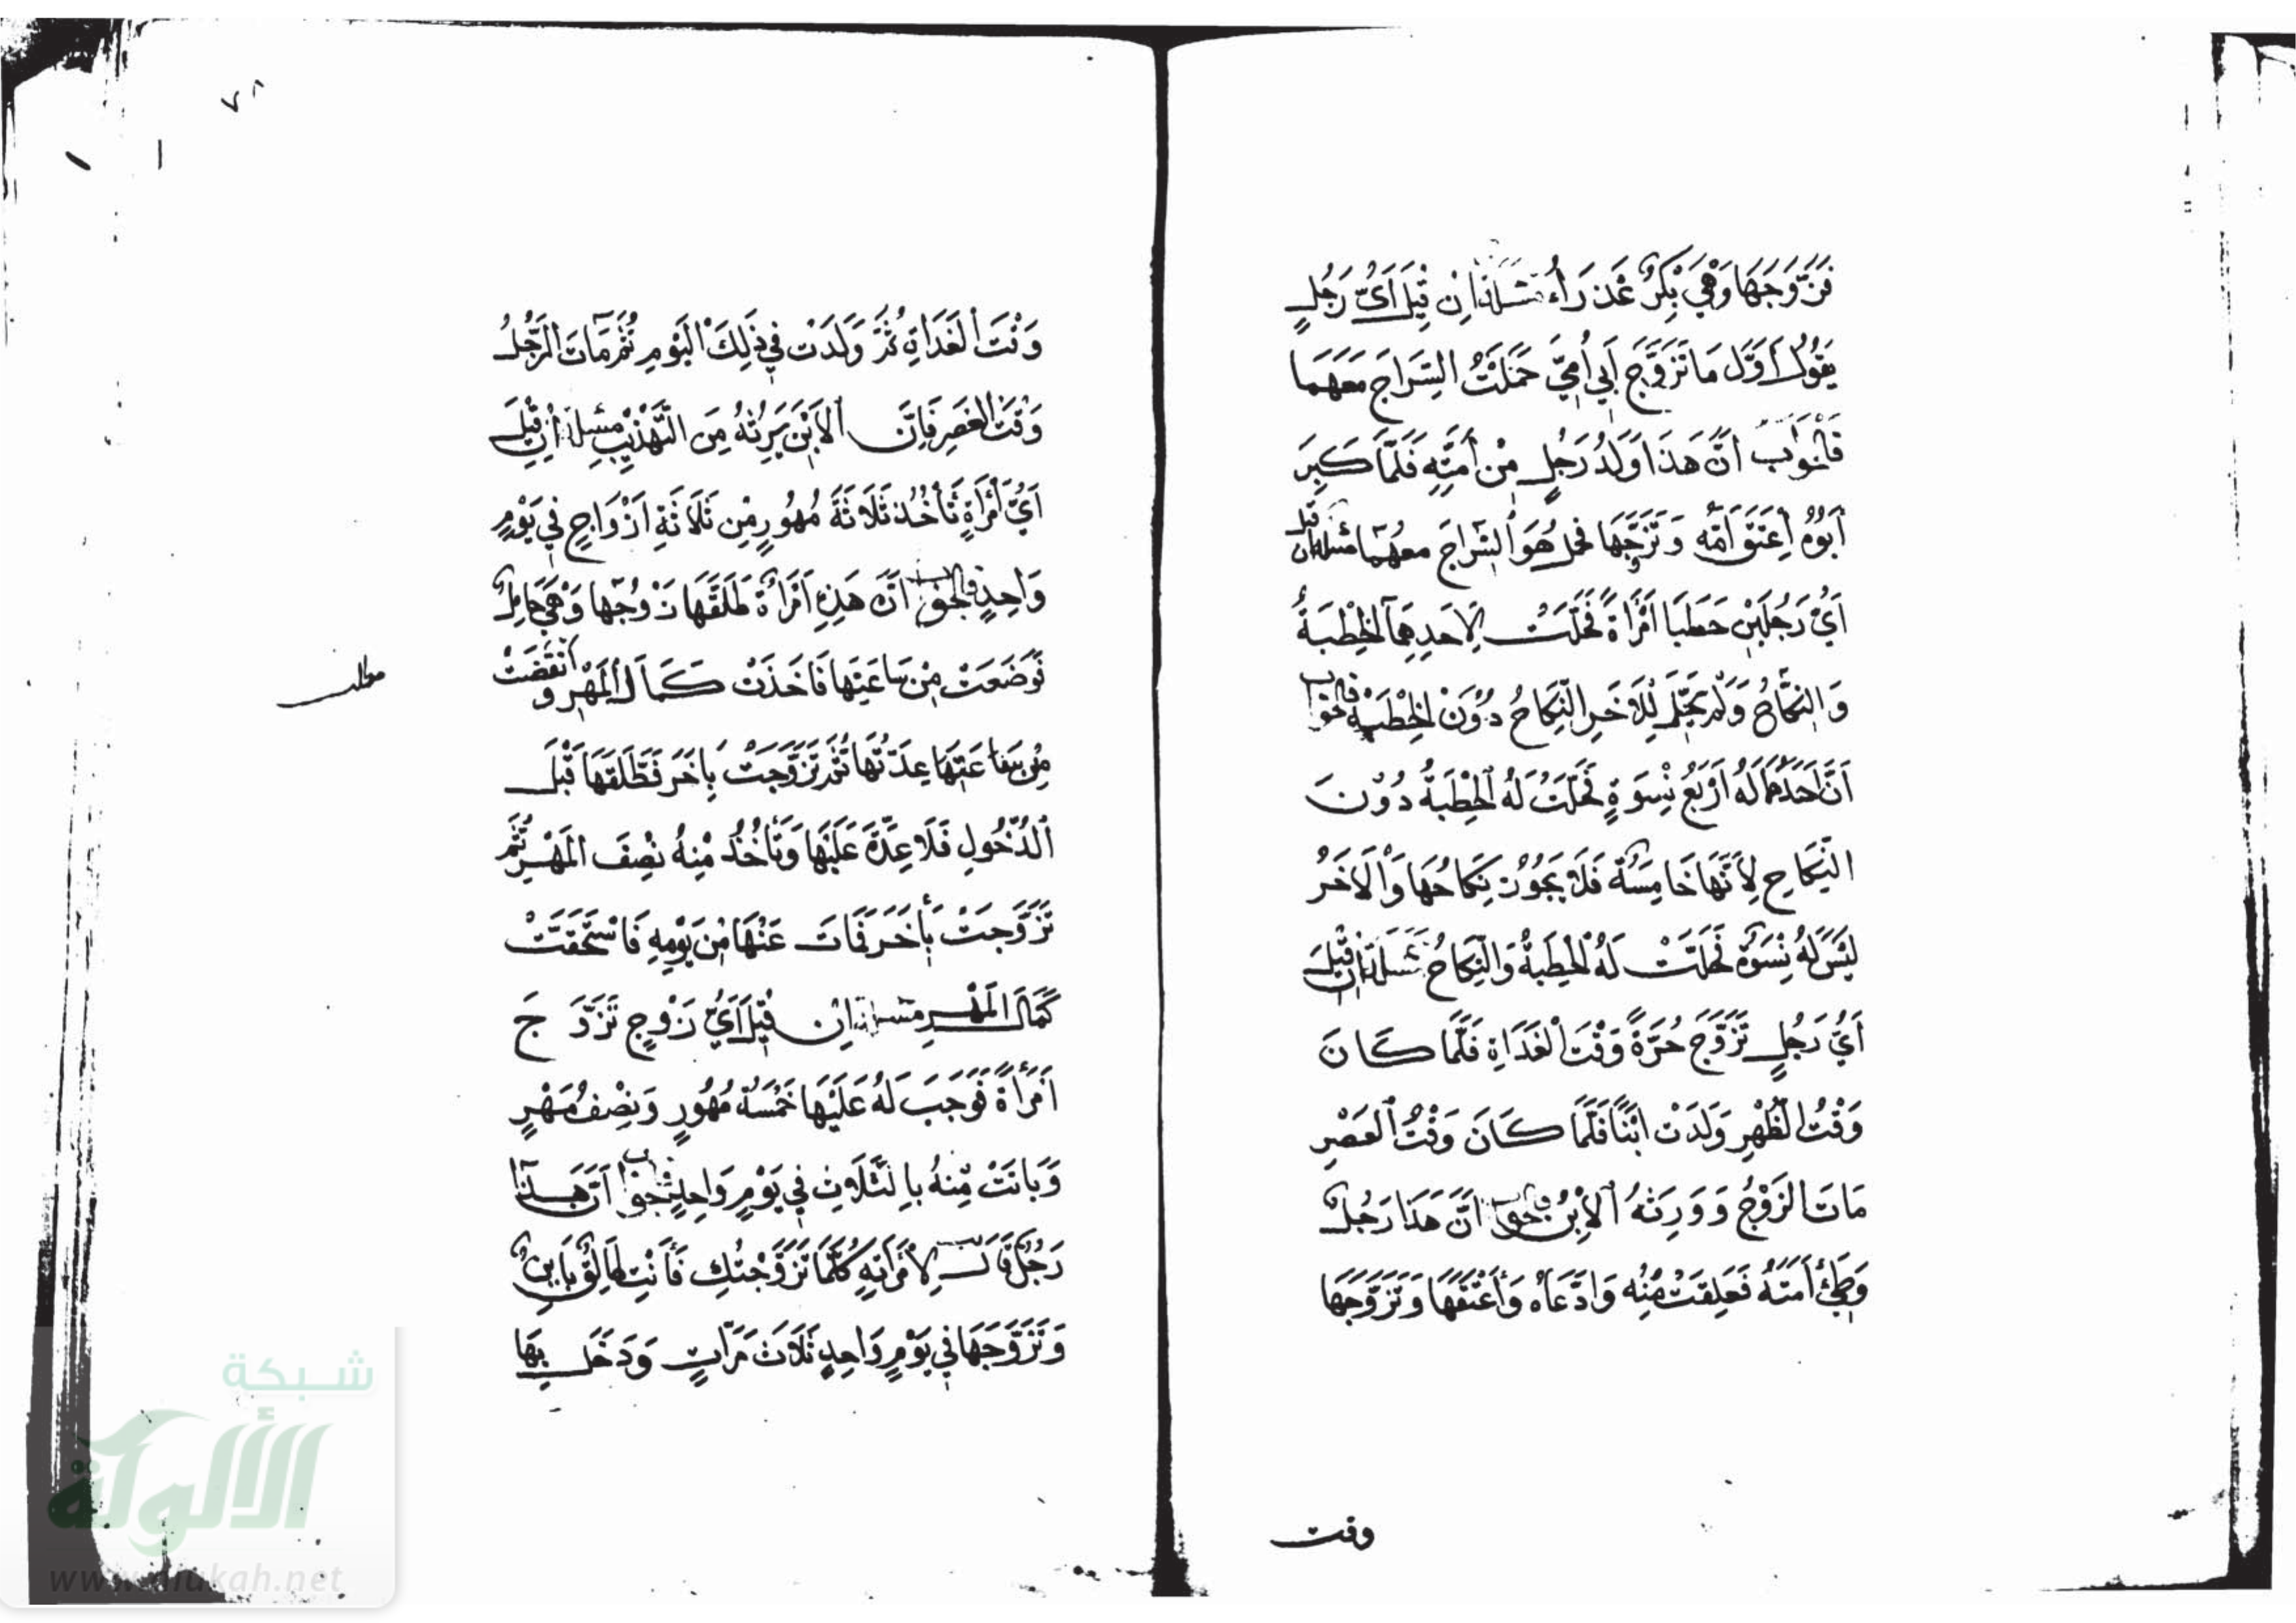 فَتَزَوَّجَهَا وَهْيَ بِكْرٌ عَذْرَاءُ مسئلة اِن قِيلَ اَيُّ رَجُلٍ
يَقُولُ اَوَّل مَا تَزَوَّجَ اَبِي اُمِّيَ حَمَلْتُ السِّرَاجَ مَعَهُمَا
فَالجَوَاب اَنَّ هَذَا وَلَدُ رَجُلٍ مِنْ اَمَتِهِ فَلَمَّا كَبِرَ
اَبُوهُ اَعتَقَ اُمَّه وَتَزَوَّجَهَا فحمل هُوَ السِّرَاجَ معهُمَا مسئلة ان قيل
اَيُّ رَجُلَيْنِ خَطَبَا اَمْرَاَةً فَحَلَّتْ لِاَحَدِهِمَا الخِطْبَةُ
وَالنِّكَاحُ وَلَمْ تَحِلَّ لِلْاَخَرِ النِّكَاحُ دُوْنَ الخِطْبَةِ فالجواب
اَنَّ اَحَدَهُمَا لَهُ اَرْبَعُ نِسْوَةٍ فَحَلَّتْ لَهُ الخِطْبَةُ دُوْنَ
النِّكَاحِ لِاَنَّهَا خَامِسَةٌ فَلَا يَجُوْزُ نِكَاحُهَا وَالْاَخَرُ
لَيْسَ لَهُ نِسْوَةٌ فَحَلَّتْ لَهُ الخِطْبَةُ وَالنِّكَاحُ مسئلة ان قِيْلَ
اَيُّ رَجُلٍ تَزَوَّجَ حُرَّةً وَقْتَ الْغَدَاةِ فَلَمَّا كَانَ
وَقْتُ الظُّهْرِ وَلَدَتْ ابْنًا فَلَمَّا كَانَ وَقْتُ الْعَصْرِ
مَاتَ الزَوْجُ وَوَرِثَهُ الْاِبْنُ فالجواب اَنَّ هَذَا رَجُلٌ
وَطِئَ اَمَتَهُ فَعَلِقَتْ مِنْه وَادَّعَاهُ وَاَعْتَقَهَا وَتَزَوَّجَهَا
وقت
٧٨
وَقْتَ الْغَدَاةِ ثُمَّ وَلَدَتْ فِي ذَلِكَ الْيَوْمِ ثُمَّ مَاتَ الرَّجُلُ
وَقْتَ الْعَصْرِ فَاِنَّ الْاِبْنَ يَرِثُهُ مِنَ التَّهْذِيْبِ مسئلة اِنْ قِيْلَ
اَيُّ اَمْرَاَةٍ تَاْخُذُ ثَلَاثَةَ مُهُورٍ مِنْ ثَلَاثَةِ اَزْوَاجٍ فِي يَوْمٍ
وَاحِدٍ فالجواب اَنَّ هَذِهِ اَمْرَاَةٌ طَلَّقَهَا زَوْجُهَا وَهْيَ حَامِلٌ
فَوَضَعَتْ مِنْ سَاعَتِهَا فَاَخَذَتْ كَمَالَ الْمَهْرِ وَانْقَضَتْ
مطلب
مِنْ سَاعَتِهَا عِدَّتُهَا ثُمَّ تَزَوَّجَتْ بِاَخَرَ فَطَلَّقَهَا قَبْلَ
الدُّخُولِ فَلَا عِدَّةَ عَلَيْهَا وَتَاْخُذُ مِنْهُ نِصْفَ الْمَهْرِ ثُمَّ
تَزَوَّجَتْ بِاَخَرَ فَمَاتَ عَنْهَا مِنْ يَوْمِهِ فَاسْتَحَقَّتْ
كَمَالَ الْمَهْرِ مسئلة اِن قِيْلَ اَيُّ زَوْجٍ تَزَوَّجَ
اَمْرَاَةً فَوَجَبَ لَهُ عَلَيْهَا خَمْسَةُ مُهُورٍ وَنِصْفُ مَهْرٍ
وَبَانَتْ مِنْهُ بِالثَّلَاثِ فِي يَوْمٍ وَاحِدٍ فالجواب اَنَّ هَذَا
رَجُلٌ قَالَ لِاْمْرَاَتِهِ كُلَّمَا تَزَوَّجْتُكِ فَاَنْتِ طَالِقٌ بَايِنٌ
وَتَزَوَّجَهَا فِي يَوْمٍ وَاحِدٍ ثَلَاثَ مَرَّاتٍ وَدَخَلَ بِهَا
شبكة
الألوكة
www.alukah.net